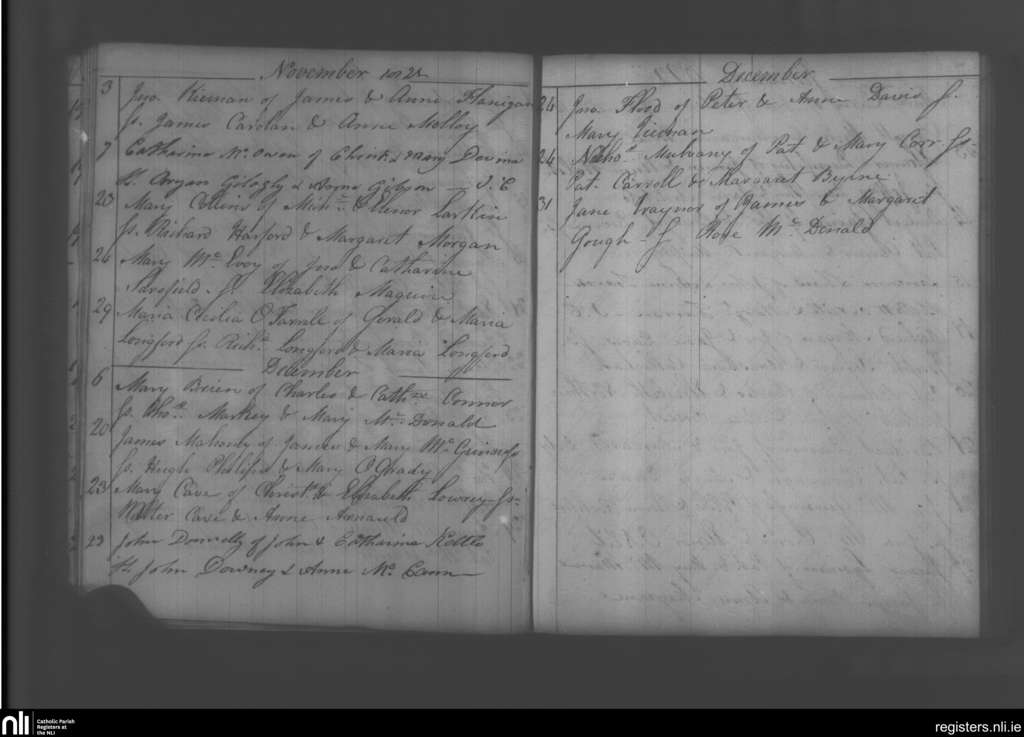 November 1821
3 Jno. Kiernan of James & Anne Flanigan
fs. James Carolan & Anne Molloy
7 Catharine Mc. Owen of Christr. & Mary Devine
fs. Gilogly & Anne Gibson — J. C
20 Mary Collins of Mich. & Elenor Larkin
fs. Richard Harford & Margaret Morgan
24 Mary Mc. Evoy of Jno & Catharine
Sarsfield fs. Elizabeth Maguire
29 Maria Cicilia O'Farrele of Gerald & Maria
Longford fs. Richd. Longford & Maria Longford
December
6 Mary Brien of Charles & Cathne. Connor
fs. Thos. Markey & Mary Mc. Donald
20 James Mahony of James & Mary Mc. Guinness
fs. Hugh Philips & Mary O'Grady
23 Mary Cave of Christr. & Elizabeth Lowrey fs.
Walter Cave & Anne Arnauld
23 John Donnelly of John & Catharina Kettle
fs. John Downey & Anne Mc. Cann
December
24 Jno. Flood of Peter & Anne Davis f.
Mary Tiernan
24 Mulvany of Pat & Mary Corr fs.
Pat. Carroll & Margaret Byrne
31 Jane Traynor of James & Margaret
Gough f Rose Mc. Donald
nli
Catholic Parish
Registers at
the NLI
registers.nli.ie